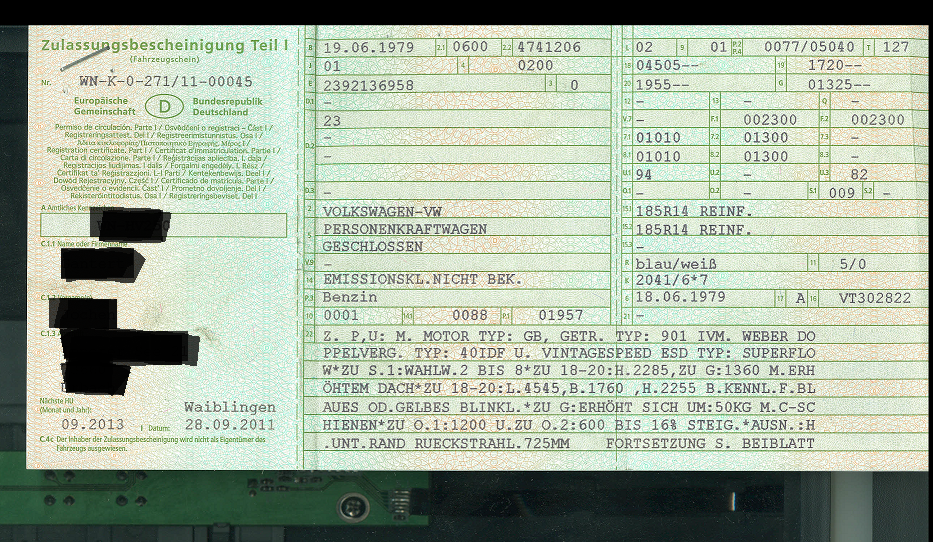 Zulassungsbescheinigung Teil I
(Fahrzeugschein)
Nr. WN-K-0-271/11-00045
Europäische Gemeinschaft
D
Bundesrepublik Deutschland
Permiso de circulación. Parte I / Osvědčení o registraci - Část I /
Registreringsattest. Del I / Registreerimistunnistus. Osa I /
Άδεια κυκλοφορίας/Πιστοποιητικό Εγγραφής. Μέρος I /
Registration certificate. Part I / Certificat d'immatriculation. Partie I /
Carta di circolazione. Parte I / Reģistrācijas apliecība. I. daļa /
Registracijos liudijimas. I dalis / Forgalmi engedély. I. Rész /
Ċertifikat ta' Reġistrazzjoni. L-I Parti / Kentekenbewijs. Deel I /
Dowód Rejestracyjny. Część I / Certificado de matrícula. Parte I /
Osvedčenie o evidencii. Časť I / Prometno dovoljenje. Del I /
Rekisteröintitodistus. Osa I / Registreringsbeviset. Del I
A Amtliches
C.1.1 Name oder Firmenname
C.1.3
Nächste HU
(Monat und Jahr):
09.2013
Waiblingen
I Datum: 28.09.2011
C.4c Der Inhaber der Zulassungsbescheinigung wird nicht als Eigentümer des
Fahrzeugs ausgewiesen.
B 19.06.1979 2.1 0600 2.2 4741206
J 01 4 0200
E 2392136958 3 0
D.1 –
23
D.2 –
–
–
D.3 –
2 VOLKSWAGEN-VW
5 PERSONENKRAFTWAGEN
GESCHLOSSEN
V.9 –
14 EMISSIONSKL.NICHT BEK.
P.3 Benzin
10 0001 14.1 0088 P.1 01957
L 02 9 01 P.2 P.4 0077/05040 T 127
18 04505-- 19 1720--
20 1955-- G 01325--
12 – 13 – Q –
V.7 – F.1 002300 F.2 002300
7.1 01010 7.2 01300 7.3 –
8.1 01010 8.2 01300 8.3 –
U.1 94 U.2 – U.3 82
O.1 – O.2 – S.1 009 S.2 –
15.1 185R14 REINF.
15.2 185R14 REINF.
15.3 –
R blau/weiß 11 5/0
K 2041/6*7
6 18.06.1979 17 A 16 VT302822
21 –
22 Z. P,U: M. MOTOR TYP: GB, GETR. TYP: 901 IVM. WEBER DO
PPELVERG. TYP: 40IDF U. VINTAGESPEED ESD TYP: SUPERFLO
W*ZU S.1:WAHLW.2 BIS 8*ZU 18-20:H.2285,ZU G:1360 M.ERH
ÖHTEM DACH*ZU 18-20:L.4545,B.1760 ,H.2255 B.KENNL.F.BL
AUES OD.GELBES BLINKL.*ZU G:ERHÖHT SICH UM:50KG M.C-SC
HIENEN*ZU O.1:1200 U.ZU O.2:600 BIS 16% STEIG.*AUSN.:H
.UNT.RAND RUECKSTRAHL.725MM FORTSETZUNG S. BEIBLATT